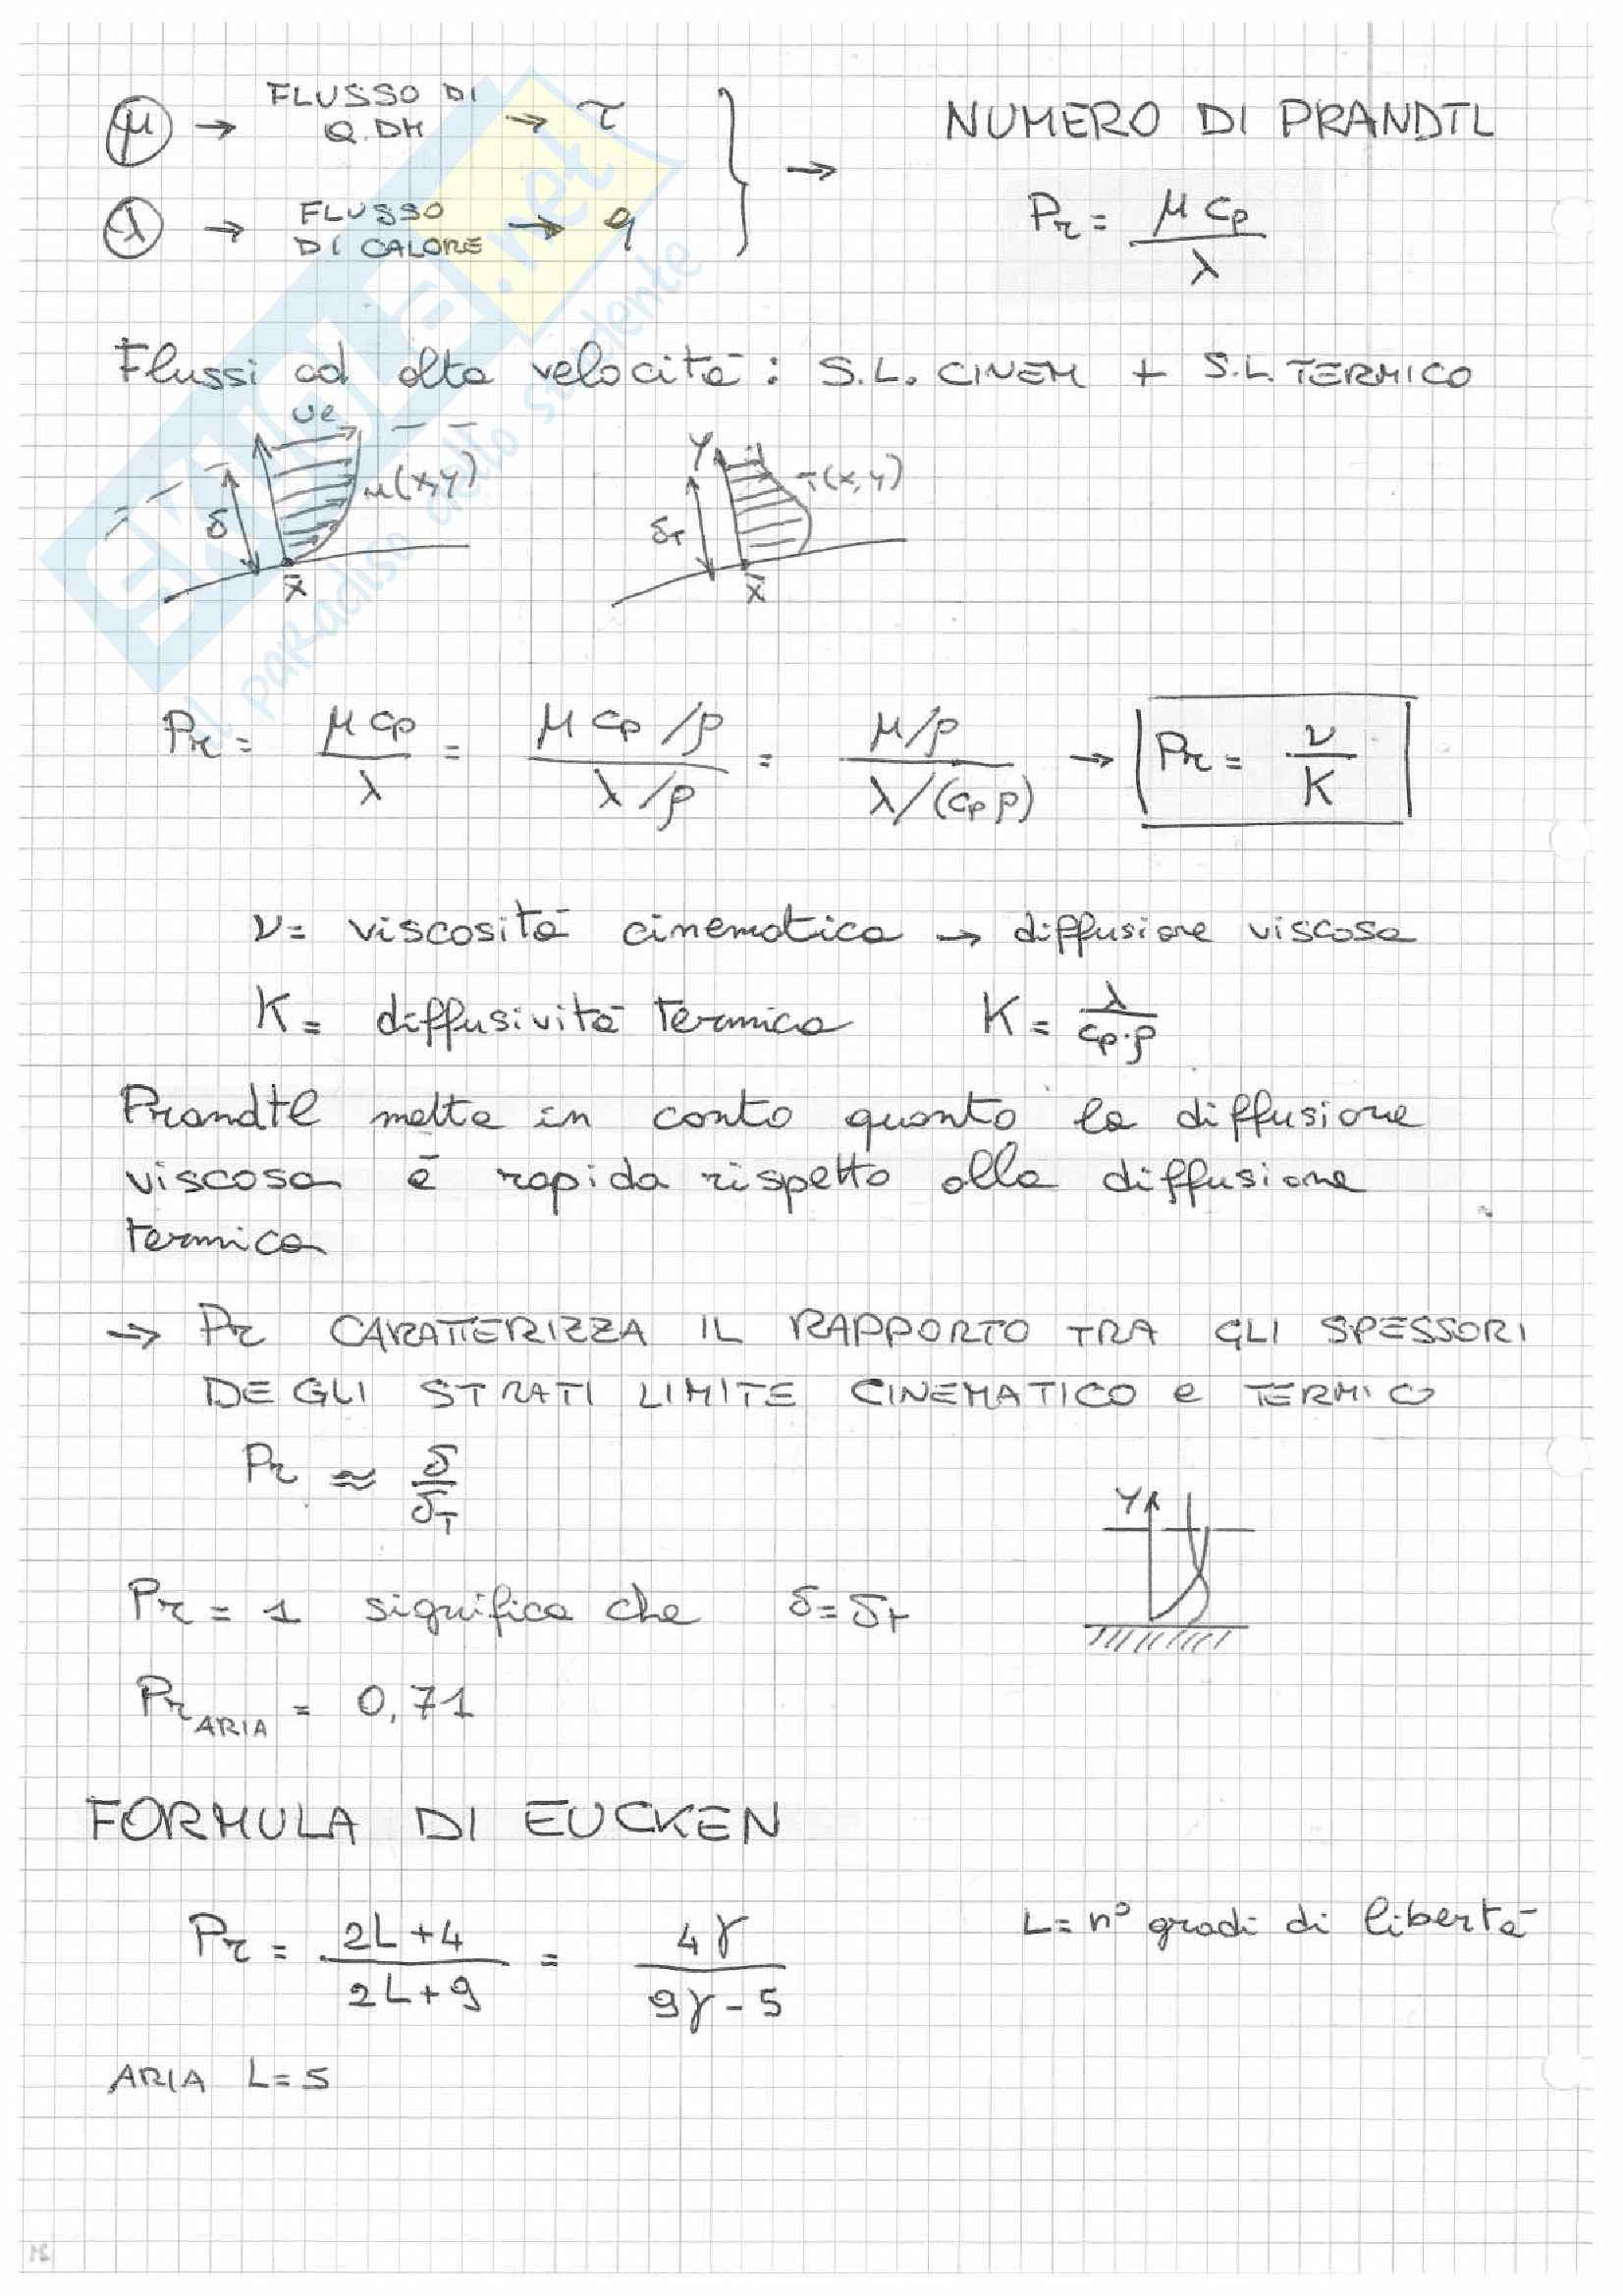 μ → FLUSSO DI Q.DM → τ
NUMERO DI PRANDTL
λ → FLUSSO DI CALORE → q
→ Pr = μ cp / λ
Flussi ad alta velocità: S.L. CINEM + S.L. TERMICO
ue
u(x,y)
δ
x̄
Y
T(x,y)
δT
x̄
Pr = μ cp / λ = (μ cp /ρ) / (λ /ρ) = (μ/ρ) / (λ/(cp ρ)) → Pr = ν / K
ν = viscosità cinematica → diffusione viscosa
K = diffusività termica K = λ / (cp·ρ)
Prandtl mette in conto quanto la diffusione
viscosa è rapida rispetto alla diffusione
termica
→ Pr CARATTERIZZA IL RAPPORTO TRA GLI SPESSORI
DEGLI STRATI LIMITE CINEMATICO e TERMICO
Pr ≈ δ / δT
Y
Pr = 1 significa che δ = δT
Pr ARIA = 0,71
FORMULA DI EUCKEN
Pr = (2L+4) / (2L+9) = 4γ / (9γ-5) L = n° gradi di libertà
ARIA L=5
SKUOLA.net
il paradiso dello studente